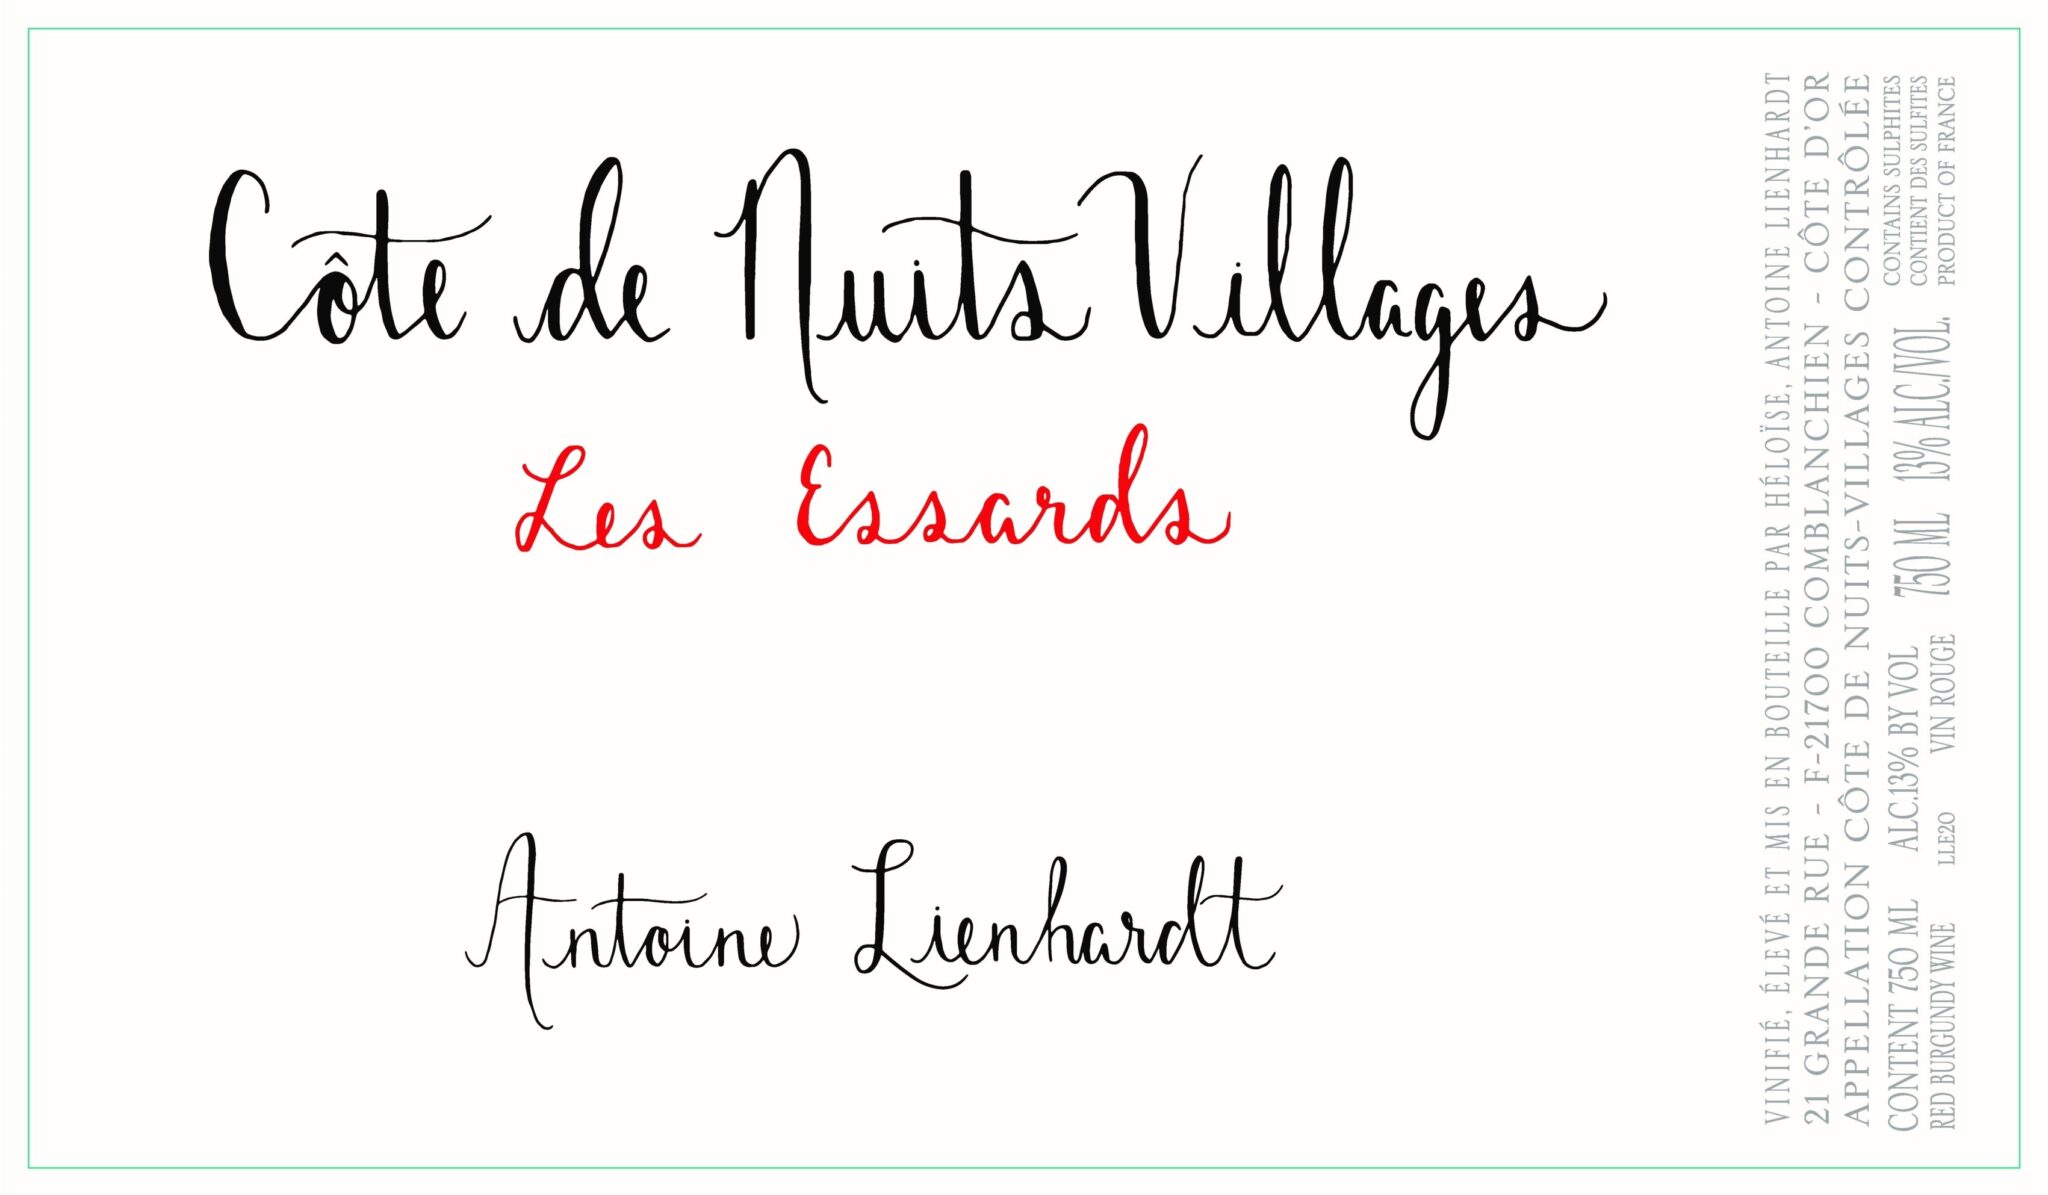 Côte de Nuits Villages
Les Essards
Antoine Lienhardt
VINIFIÉ, ÉLEVÉ ET MIS EN BOUTEILLE PAR HÉLOÏSE, ANTOINE LIENHARDT
21 GRANDE RUE - F-21700 COMBLANCHIEN - CÔTE D'OR
APPELLATION CÔTE DE NUITS-VILLAGES CONTRÔLÉE
CONTENT 750 ML ALC.13% BY VOL 750 ML 13% ALC./VOL.
RED BURGUNDY WINE LLE20 VIN ROUGE
CONTAINS SULPHITES
CONTIENT DES SULFITES
PRODUCT OF FRANCE